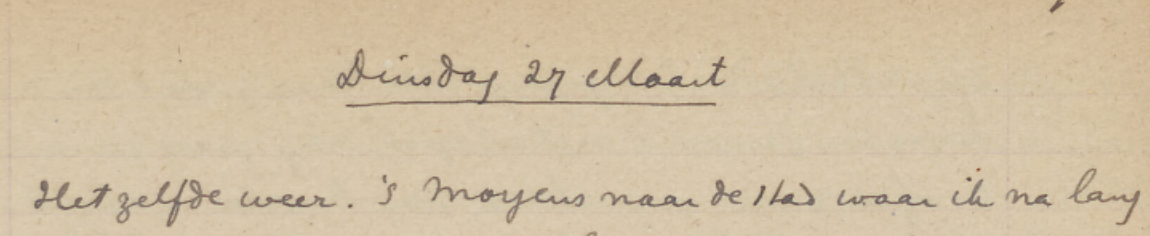 Dinsdag 27 Maart
Het zelfde weer. 's Morgens naar de stad waar ik na lang